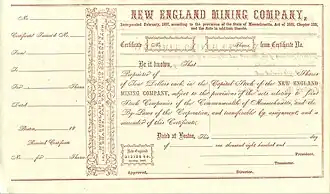 No.
Certificate Issued No.
From
To
Dated
Boston, 18
Received Certificate
No. for Shares
NEW ENGLAND MINING COMPANY,
Incorporated February, 1877, according to the provisions of the Statute of Massachusetts, Act of 1870, Chapter 224,
and the Acts in addition thereto.
Certificate Shares from Certificate No.
Be it known, That
Proprietor of Shares
of Four Dollars each, in the Capital Stock of the NEW ENGLAND
MINING COMPANY, subject to the provisions of the acts relating to Joint
Stock Companies of the Commonwealth of Massachusetts, and the
By-Laws of the Corporation, and transferable by assignment, and a
surrender of this Certificate.
Dated at Boston, This day
of one thousand eight hundred and
New England
MINING CO.
President.
Treasurer.
Approved, Director.